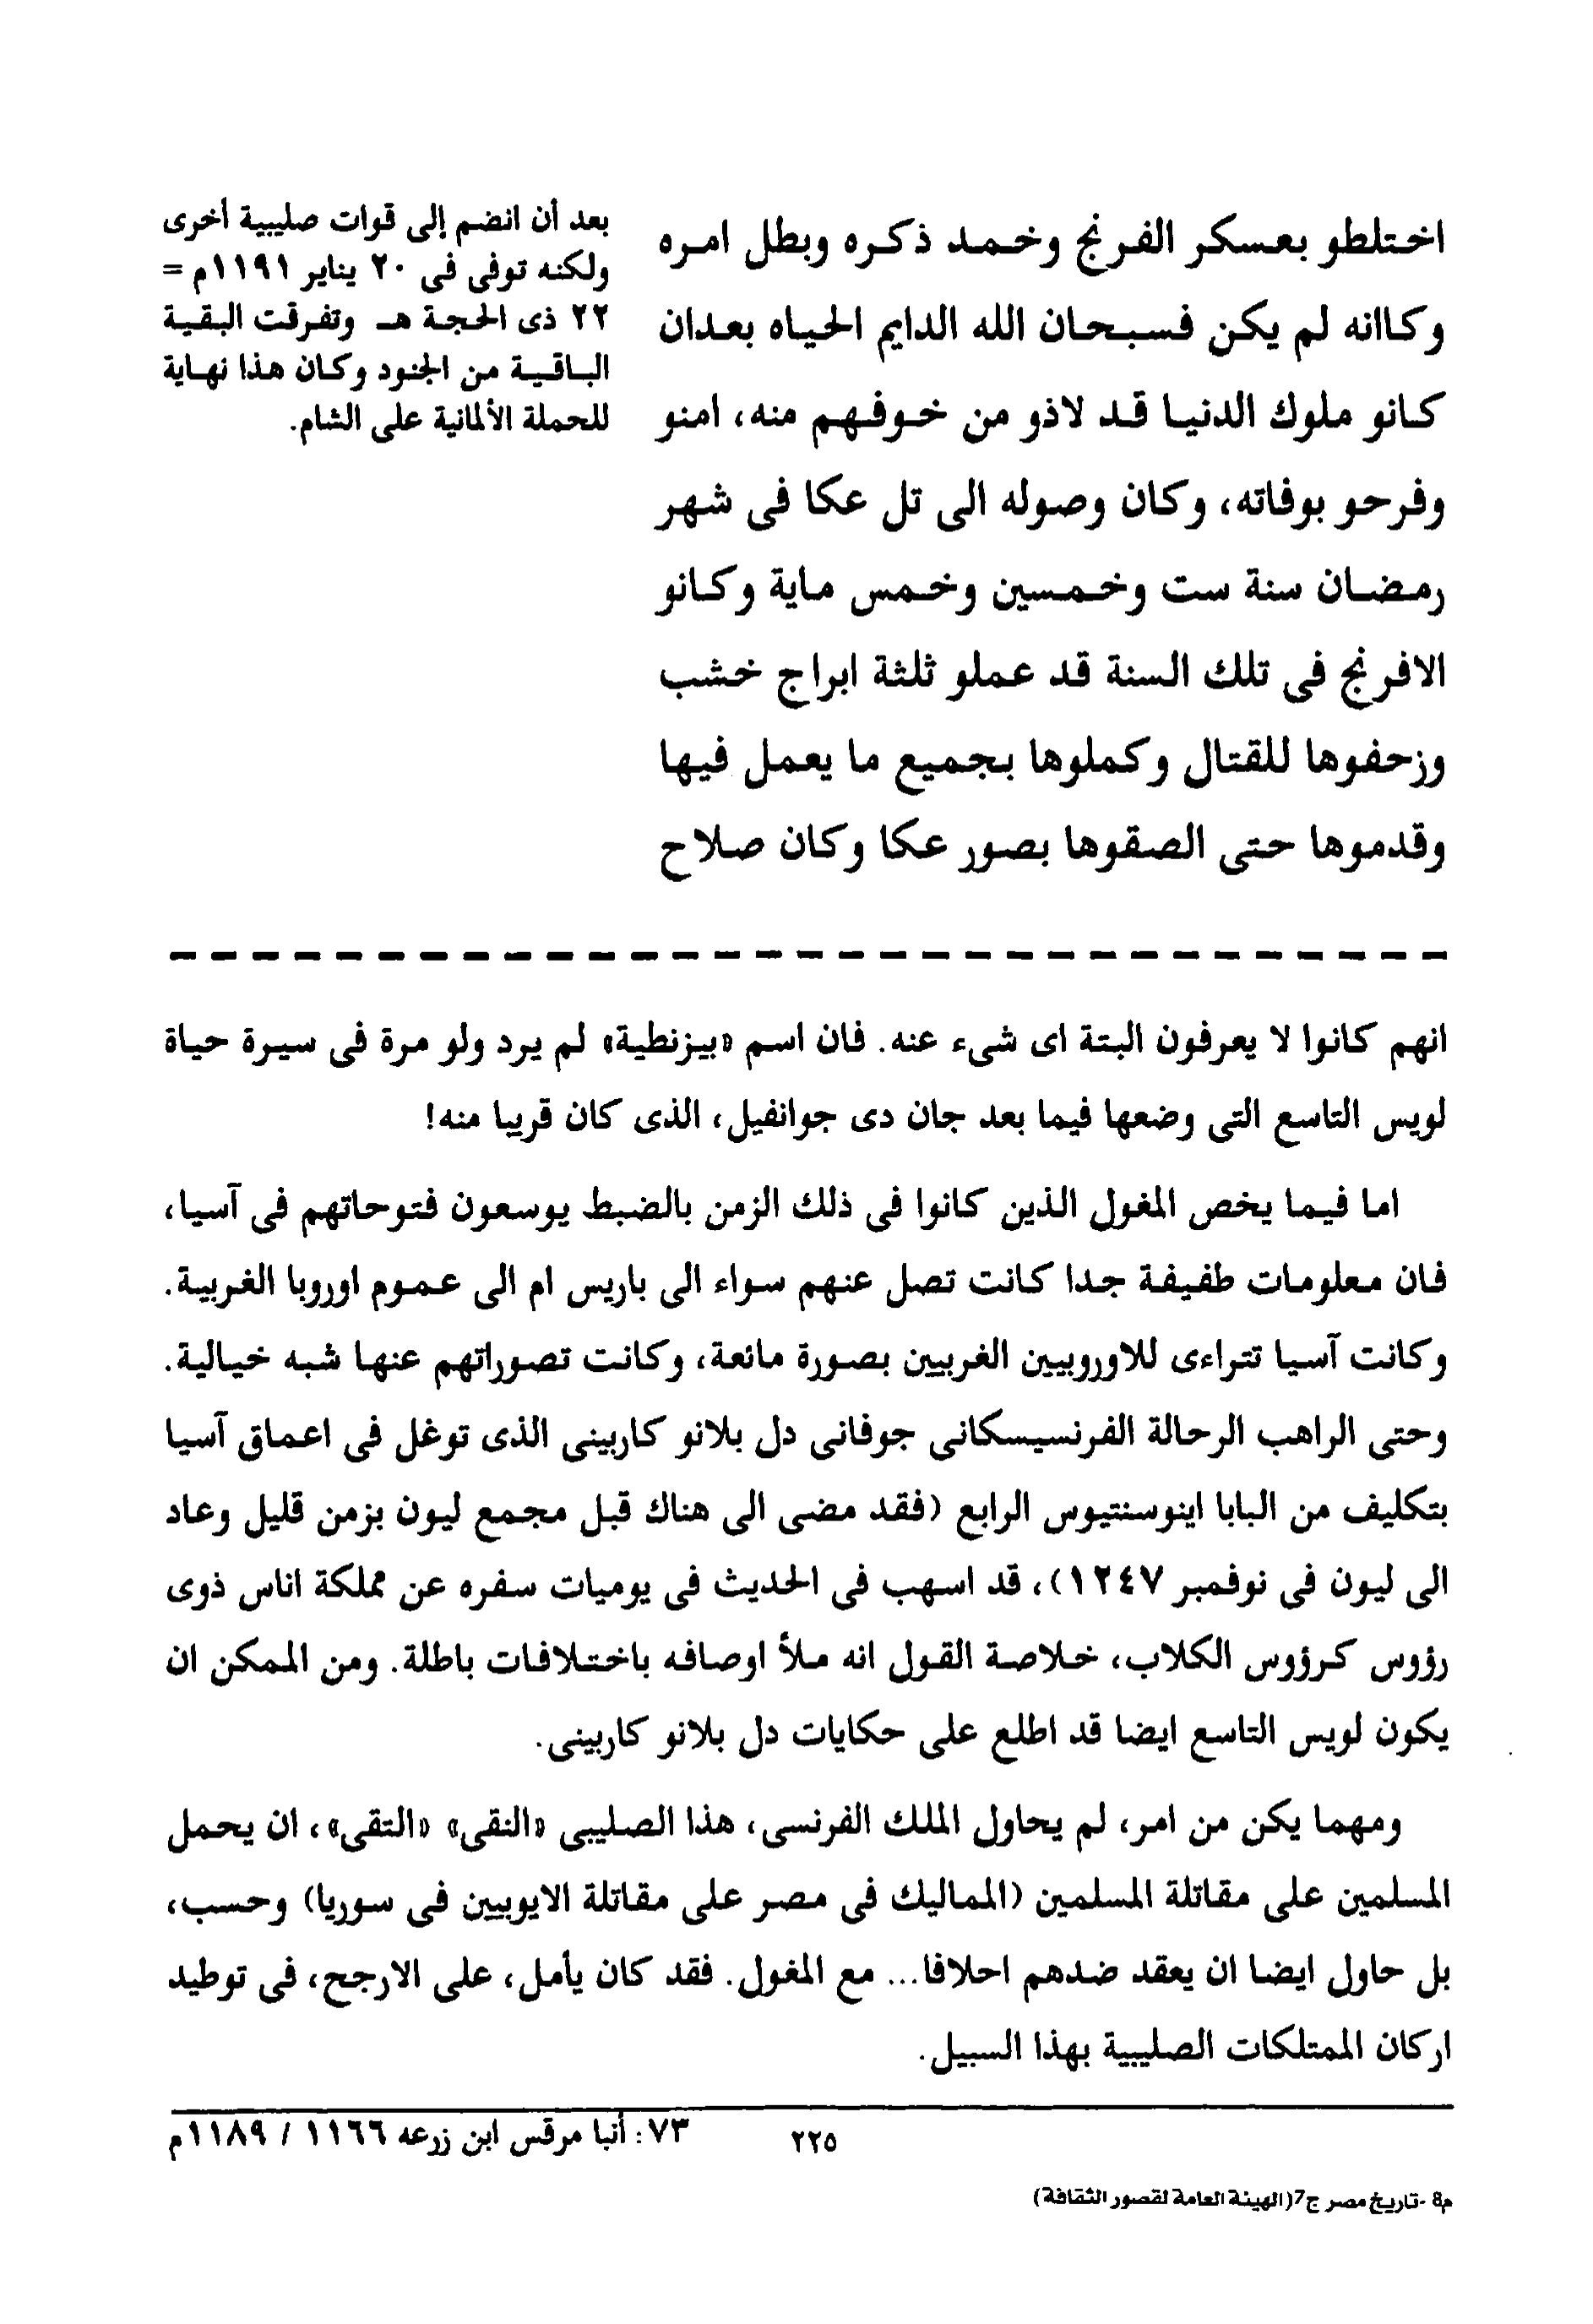 اختلطو بعسكر الفرنج وخمد ذكره وبطل امره
وكاانه لم يكن فسبحان الله الدايم الحياه بعدان
كانو ملوك الدنيا قد لاذو من خوفهم منه، امنو
وفرحو بوفاته، وكان وصوله الى تل عكا فى شهر
رمضان سنة ست وخمسين وخمس ماية وكانو
الافرنج فى تلك السنة قد عملو ثلثة ابراج خشب
وزحفوها للقتال وكملوها بجميع ما يعمل فيها
وقدموها حتى الصقوها بصور عكا وكان صلاح
بعد أن انضم إلى قوات صليبية أخرى
ولكنه توفى فى ٢٠ يناير ١١٩١م =
٢٢ ذى الحجة هـ وتفرقت البقية
الباقية من الجنود وكان هذا نهاية
للحملة الألمانية على الشام.
انهم كانوا لا يعرفون البتة اى شىء عنه. فان اسم «بيزنطية» لم يرد ولو مرة فى سيرة حياة
لويس التاسع التى وضعها فيما بعد جان دى جوانفيل، الذى كان قريبا منه!
اما فيما يخص المغول الذين كانوا فى ذلك الزمن بالضبط يوسعون فتوحاتهم فى آسيا،
فان معلومات طفيفة جدا كانت تصل عنهم سواء الى باريس ام الى عموم اوروبا الغربية.
وكانت آسيا تتراءى للاوروبيين الغربيين بصورة مائعة، وكانت تصوراتهم عنها شبه خيالية.
وحتى الراهب الرحالة الفرنسيسكانى جوفانى دل بلانو كاربينى الذى توغل فى اعماق آسيا
بتكليف من البابا اينوسنتيوس الرابع (فقد مضى الى هناك قبل مجمع ليون بزمن قليل وعاد
الى ليون فى نوفمبر ١٢٤٧)، قد اسهب فى الحديث فى يوميات سفره عن مملكة اناس ذوى
رؤوس كرؤوس الكلاب، خلاصة القول انه ملأ اوصافه باختلافات باطلة. ومن الممكن ان
يكون لويس التاسع ايضا قد اطلع على حكايات دل بلانو كاربينى.
ومهما يكن من امر، لم يحاول الملك الفرنسى، هذا الصليبى «النقى» «التقى»، ان يحمل
المسلمين على مقاتلة المسلمين (المماليك فى مصر على مقاتلة الايوبيين فى سوريا) وحسب،
بل حاول ايضا ان يعقد ضدهم احلافا... مع المغول. فقد كان يأمل، على الارجح، فى توطيد
اركان الممتلكات الصليبية بهذا السبيل.
٢٢٥
٧٣: أنبا مرقس ابن زرعه ١١٦٦ / ١١٨٩م
م8 -تاريخ مصر ج7(الهيئة العامة لقصور الثقافة)